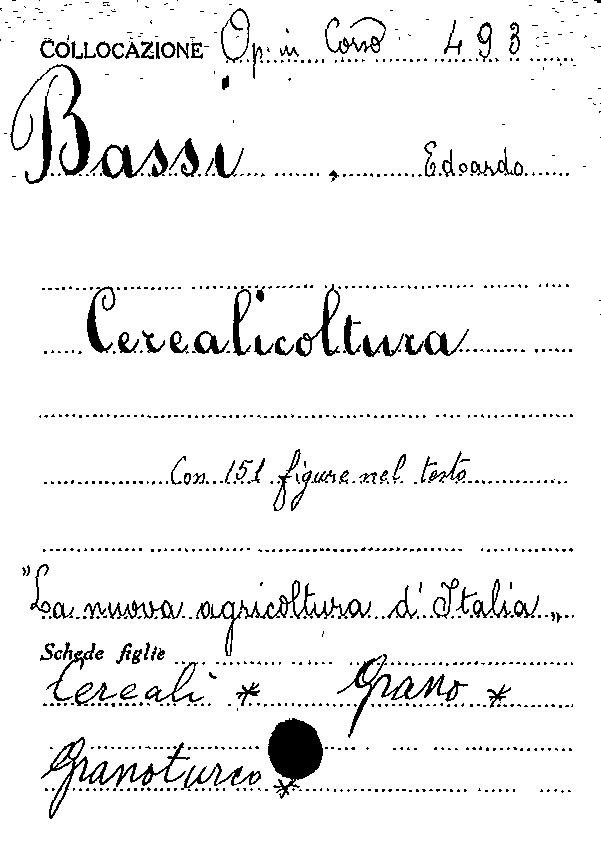 COLLOCAZIONE Op. in Corso 493
Bassi, Edoardo
Cerealicoltura
Con 151 figure nel testo
"La nuova agricoltura d'Italia„
Schede figlie
Cereali * Grano *
Granoturco *